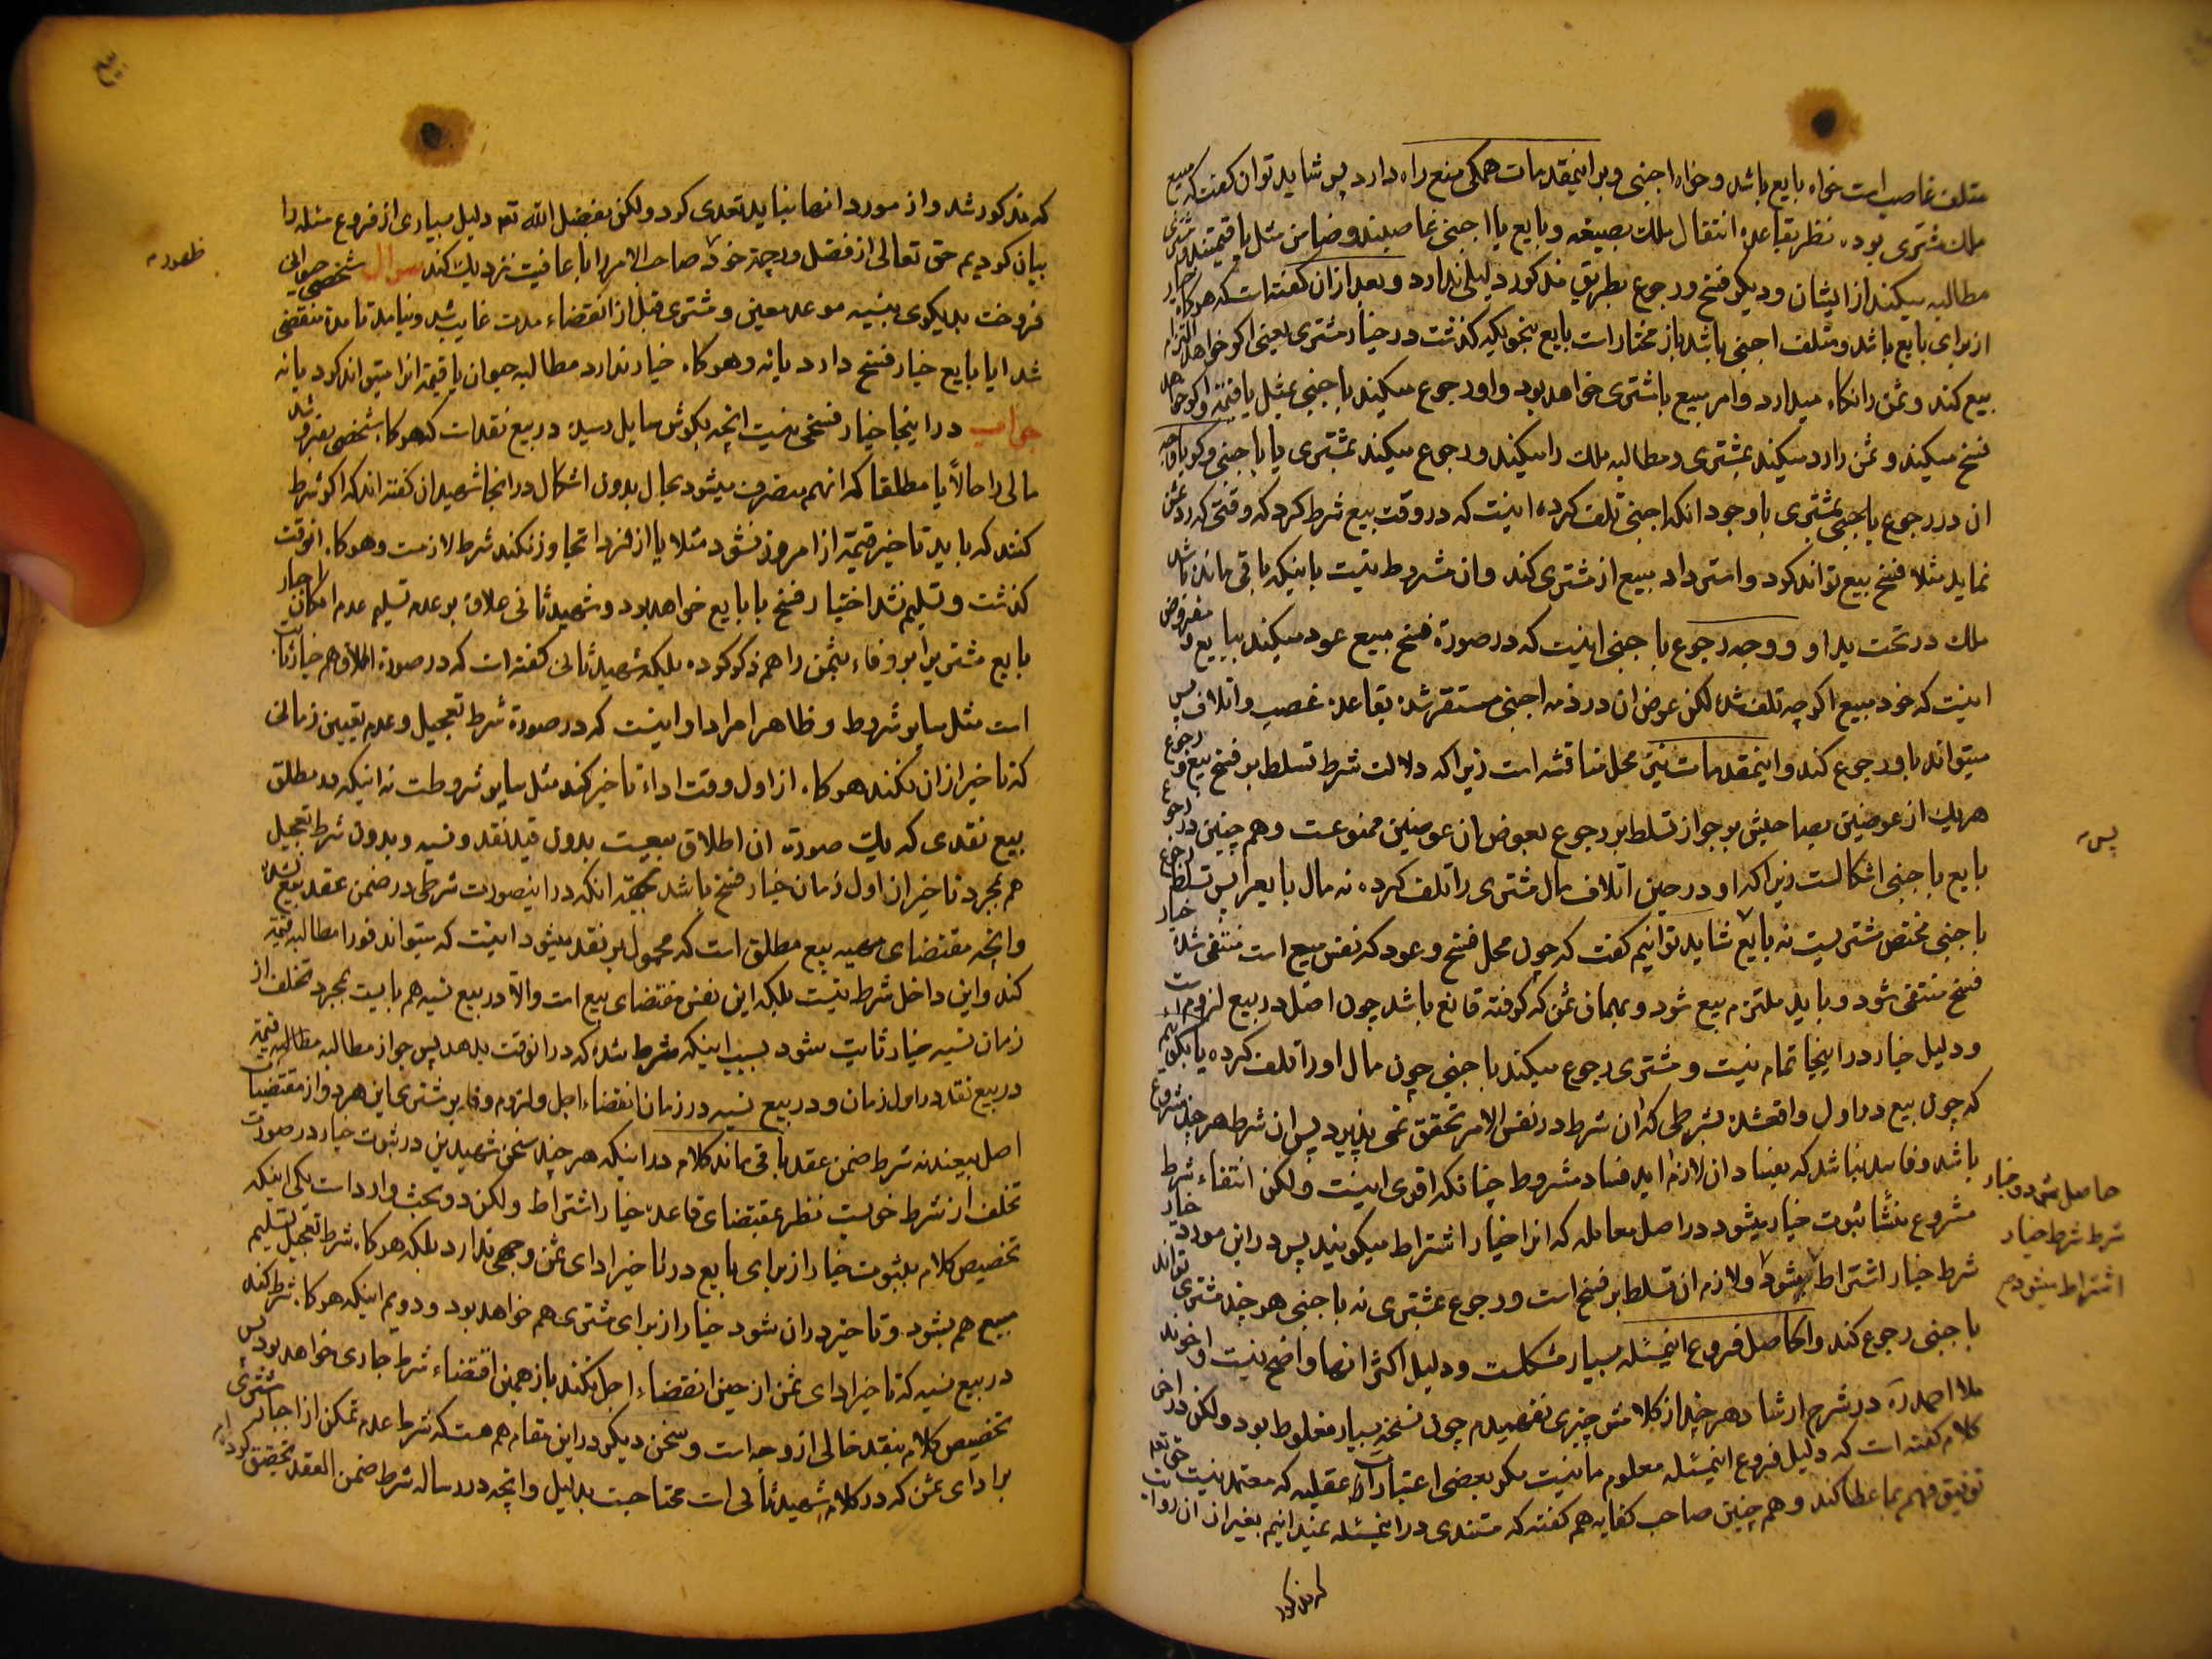 متلف غاصب است خواه بایع باشد و خواه اجنبی و بر اینمقدمات همکی منع راه دارد پس شاید توان کفت که مبیع
ملك مشتری بوده نظر بقاعده انتقال ملك بصیغه و بایع یا اجنبی غاصبند و ضامن مثل یا قیمتند مشتری
مطالبه میکند از ایشان و دیکر فسخ و رجوع بطریق مذکور دلیلی ندارد و بعد از ان کفته است که هرکاه خیار
از برای بایع باشد و متلف اجنبی باشد باز مختار است بایع بنحویکه کذشت در خیار مشتری یعنی اکر خواهد التزام
بیع کند و ثمن را نکاه میدارد و امر مبیع با مشتری خواهد بود و او رجوع میکند باجنبی بمثل یا قیمة و اکر خواهد
فسخ میکند و ثمن را رد میکند بمشتری و مطالبه ملك را میکند و رجوع میکند بمشتری یا باجنبی و کویا وجه
ان در رجوع بمشتری با وجود انکه اجنبی تلف کرده اینست که در وقت بیع شرط کرد که وقتی که رد ثمن
نماید مثلا فسخ بیع تواند کرد و استرداد مبیع از مشتری کند و ان مشروط نیست باینکه باقی مانده باشد
ملك در تحت ید او و وجه رجوع باجنبی اینست که در صورة فسخ مبیع عود میکند ببایع و مفروض
اینست که خود مبیع اکر چه تلف شده لکن عوض ان در ذمه اجنبی مستقر شده بقاعده غصب و اتلاف پس
میتواند باو رجوع کند و اینمقدمات نیز محل مناقشه است زیرا که دلالت شرط تسلط بر فسخ بیع و رجوع
هر یك از عوضین بصاحبش بر جواز تسلط بر رجوع بعوض ان عوضین ممنوعست و هم چنین در رجوع
بایع باجنبی اشکالست زیرا که او در حین اتلاف مال مشتری را تلف کرده نه مال بایع را پس تسلط رجوع
باجنبی مختص مشتریست نه بایع شاید توانیم کفت که چون محل فسخ و عود که نفس مبیع است منتفی شده خیار
فسخ منتفی شود و باید ملتزم بیع شود و بهمان ثمن که کرفته قانع باشد چون اصل در بیع لزوم است
و دلیل خیار در اینجا تمام نیست و مشتری رجوع میکند باجنبی چون مال او را تلف کرده یا بکوییم
که چون بیع در اول واقع شده بشرطی که ان شرط در نفس الامر تحقق نمی پذیرد پس ان شرط هر چند مشروع
باشد و فاسد نباشد که بفساد ان لازم اید فساد مشروط چنانکه اقوی اینست ولکن انتفاء شرط
مشروع منشأ ثبوت خیار میشود در اصل معامله که انرا خیار اشتراط میکویند پس در این مورد خیار
شرط خیار اشتراط میشود و لازم ان تسلط بر فسخ است و رجوع بمشتری نه باجنبی هر چند مشتری تواند
باجنبی رجوع کند والحاصل فروع اینمسئله بسیار مشکلست و دلیل اکثر انها واضح نیست و اخوند
ملا احمد ره در شرح ارشاد هر چند از کلامش چیزی نفهمیدم چون نسخه بسیار مغلوط بود ولکن در اخر
کلام کفته است که دلیل فروع اینمسئله معلوم ما نیست مکر بعضی اعتبارات عقلیه که معتمد نیست حق تعالی
توفیق فهم بما عطا کند و هم چنین صاحب کفایه هم کفته که مستندی در اینمسئله نمیدانیم بغیر از ان روایت
که مذکور
پس
حاصل میشود و خیار
شرط شرط خیار
اشتراط میشود
بیع
که مذکور شد و از مورد انها نباید تعدی کرد ولکن بفضل الله تعه دلیل بسیاری از فروع مسئله را
بیان کردیم حق تعالی از فضل و رحمة خود صاحب الامر را با عافیت نزدیك کند سوال شخصی حیوانی
ظهور
فروخت بدیکری بنسیه موعد معین و مشتری قبل از انقضاء مدت غایب شد و نیامد تا مدة منقضی
شد ایا بایع خیار فسخ دارد یا نه و هرکاه خیار ندارد مطالبه حیوان یا قیمة انرا میتواند کرد یا نه
جواب در اینجا خیار فسخی نیست انچه بکوش ما یل رسیده در بیع نقد است که هرکاه شخصی بفروشد
مالی را حالاً یا مطلقا که انهم منصرف میشود بحال بدون اشکال در انجا شهیدان کفته اند که اکر شرط
کنند که باید تاخیر قیمة از امروز نشود مثلا یا از فردا تجاوز نکند شرط لازمست و هرکاه انوقت
کذشت و تسلیم نشد اختیار فسخ با بایع خواهد بود و شهید ثانی علاوه بر عدم تسلیم عدم امکان اجبار
بایع مشتری را بر وفاء بثمن را هم ذکر کرده بلکه شهید ثانی کفته است که در صورة اطلاق هم خیار ثابت
است مثل سایر شروط و ظاهرا مراد او اینست که در صورة شرط تعجیل و عدم تعیین زمانی
که تاخیر از ان نکند هرکاه از اول وقت اداء تاخیر کند مثل سایر شروطست نه اینکه در مطلق
بیع نقدی که یك صورة ان اطلاق بیعست بدون قید نقد و نسیه و بدون شرط تعجیل
هم بمجرد تاخیر از اول زمان خیار فسخ باشد بجهة انکه در اینصورت شرطی در ضمن عقد بیع نشده
و انچه مقتضای بیع مطلق است که محمول بر نقد میشود اینست که میتواند فورا مطالبه قیمة
کند و این داخل شرط نیست بلکه این نفس مقتضای بیع است والّا در بیع نسیه هم بایست بمجرد تخلف از
زمان نسیه خیار ثابت شود بسبب اینکه شرط شده که در انوقت بدهد پس جواز مطالبه قیمة
در بیع نقد در اول زمان و در بیع نسیه در زمان انقضاء اجل و لزوم وفا بر مشتری این هر دو از مقتضیات
اصل بیعند نه شرط ضمن عقد باقی ماند کلام در اینکه هر چند سخن شهیدین در ثبوت خیار در صورت
تخلف از شرط خوبست نظر بمقتضای قاعده خیار اشتراط ولکن دو بحث وارد است یکی اینکه
تخصیص کلام بثبوت خیار از برای بایع در تاخیر ادای ثمن وجهی ندارد بلکه هرکاه شرط تعجیل تسلیم
مبیع هم بشود و تاخیر در ان شود خیار از برای مشتری هم خواهد بود و دویم اینکه هرکاه شرط کند
در بیع نسیه که تاخیر ادای ثمن از حین انقضاء اجل نکند باز همین اقتضاء شرط جاری خواهد بود پس
تخصیص کلام بنقد خالی از وجه است و سخن دیکر در این مقام هم هست که شرط عدم تمکن از اجبار مشتری
بر ادای ثمن که در کلام شهید ثانی است محتاجست بدلیل و انچه در رساله شرط ضمن العقد تحقیق کرده ام